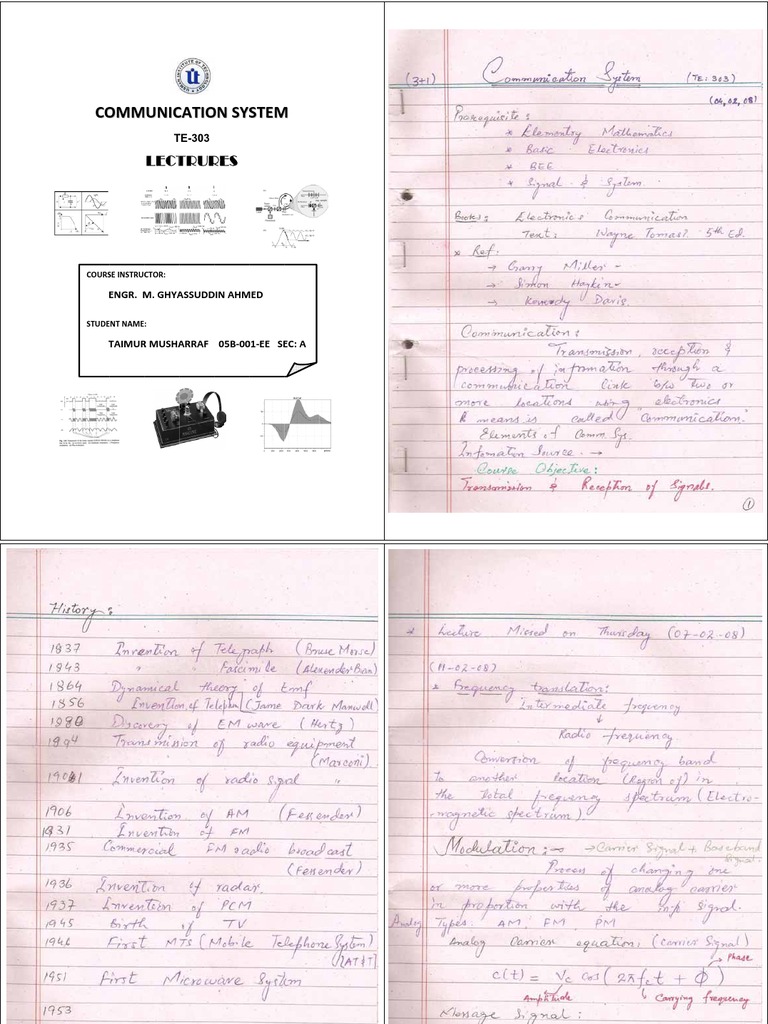 COMMUNICATION SYSTEM
TE-303
LECTRURES
COURSE INSTRUCTOR:
ENGR. M. GHYASSUDDIN AHMED
STUDENT NAME:
TAIMUR MUSHARRAF 05B-001-EE SEC: A
(3+1) Communication System (TE:303)
(04,02,08)
Prerequisite:
* Elementry Mathematics
* Basic Electronics
* BEE
* Signal & System
Books: Electronics Communication
Text: Wayne Tomasi 5th Ed.
* Ref:
→ Garry Miller -
→ Simon Haykin -
→ Kennedy Davis.
Communication:
Transmission, reception &
processing of information through a
communication link b/w two or
more locations using electronics
means is called "Communication."
Elements of Comm Sys.
Information Source. →
Course Objective:
Transmission & Reception of Signals.
1
History:
1837 Invention of Telegraph (Bruce Morse)
1843 " " Fascimile (Alexender Bean)
1864 Dynamical theory of emf
1856 Invention of Telephn (Jame Dark Manwell)
Discovery of EM wave (Hertz)
Transmission of radio equipment
(Marconi)
Invention of radio signal "
1906 Invention of AM (Fessender)
1931 Invention of FM
1935 Commercial FM radio broadcast
(Fessender)
1936 Invention of radar.
1937 Invention of PCM
1945 Birth of TV
1946 First MTS (Mobile Telephone System)
(AT&T)
1951 First Microwave System
1953
* Lecture Missed on Thursday (07-02-08)
(11-02-08)
* Frequency translation:
Intermediate frequency
↓
Radio frequency.
Conversion of frequency band
to another location (Region of) in
the total frequency spectrum (Electro-
magnetic spectrum).
Modulation: → Carrier Signal + Baseband
Signal.
Process of changing one
or more properties of analog carrier
in proportion with the i/p signal.
Analog Types: AM FM PM
Analog Carrier equation, (carrier Signal)
Phase
c(t) = Vc cos(2πfct + Φ)
Amplitude Carrying frequency
Message Signal: